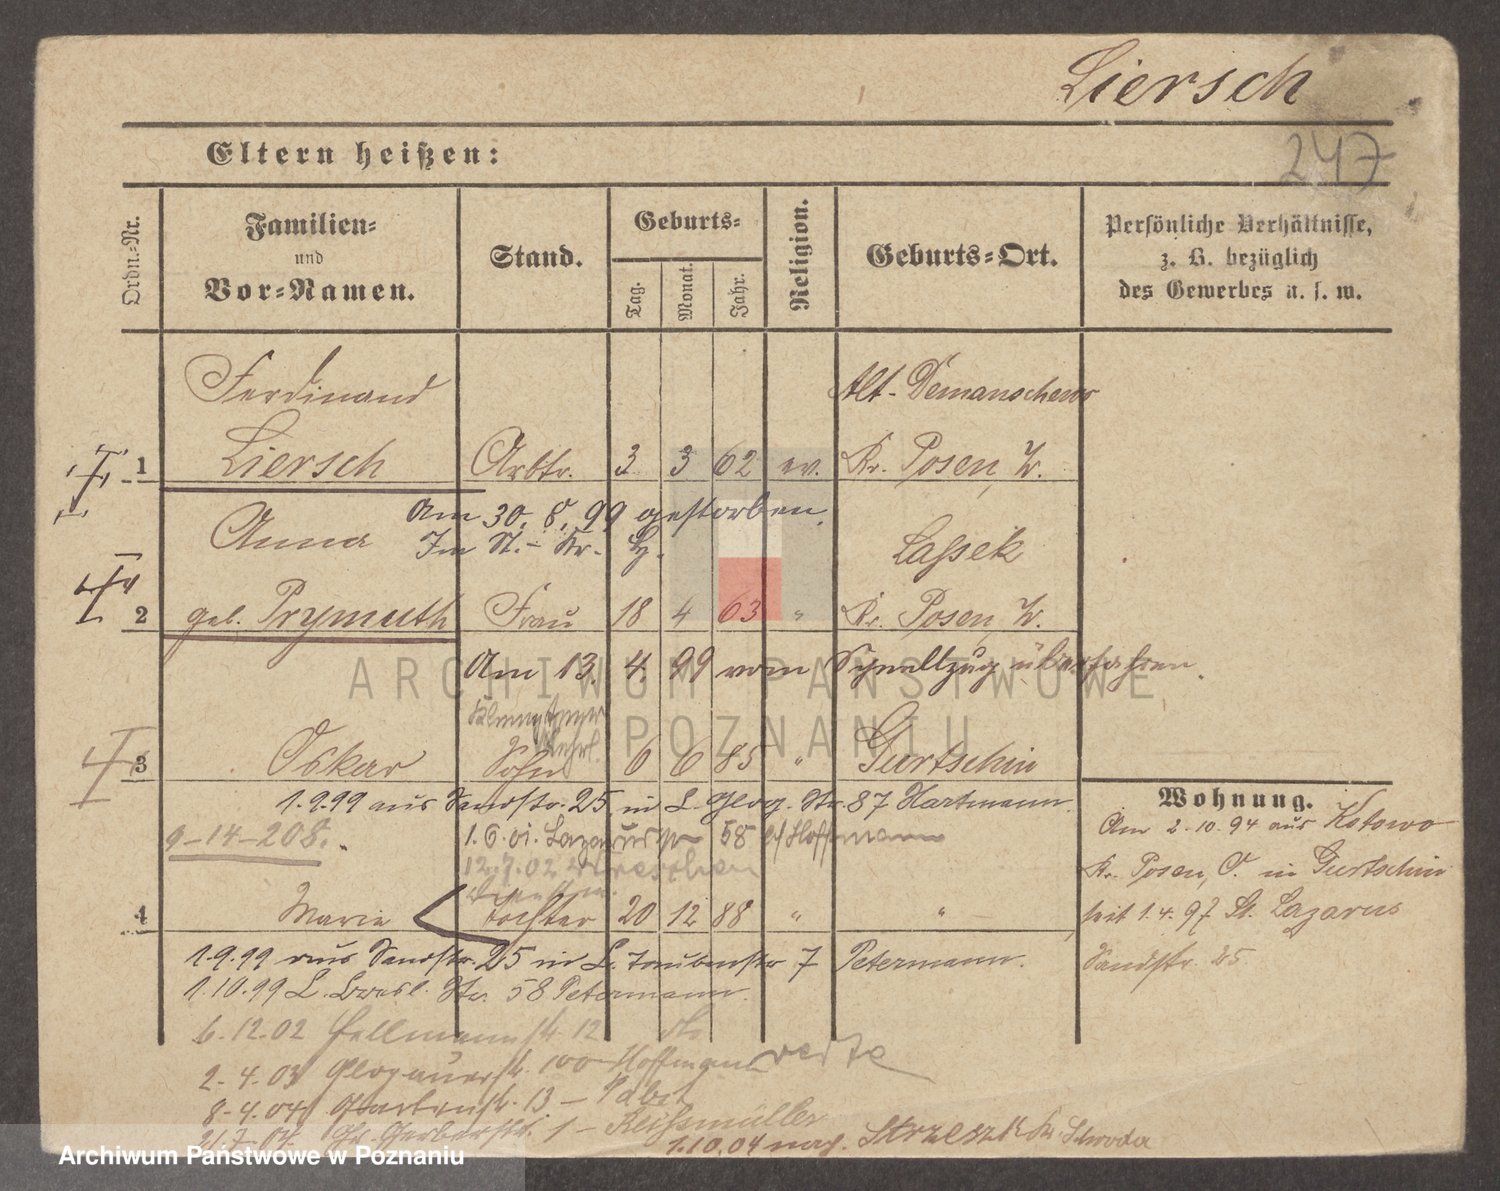 Liersch
247
Eltern heißen:
Ordn.-Nr.
Familien-
und
Vor-Namen.
Stand.
Geburts-
Tag.
Monat.
Jahr.
Religion.
Geburts-Ort.
Persönliche Verhältnisse,
z. B. bezüglich
des Gewerbes u. s. w.
Ferdinand Alt-Demanschewo
1 Liersch Arbtr. 3 3 62 ev. Kr. Posen, W.
Am 30. 8. 99 gestorben.
Anna Im St.- Kr. Lassek
2 geb. Prymuth Frau 18 4 63 " Kr. Posen, W.
Am 13. 4. 99 vom Schnellzug überfahren.
3 Oskar Sohn 6 6 85 " Gurtschin
1.9.99 aus Sandstr. 25 in L. Glog. Str. 87 Hartmann.
9-14-208.
1.6.01. Lazarus 58 b/Hoffmann
12.7.02
4 Marie Tochter 20 12 88 " "
1.9.99 aus Sandstr. 25 in L. Taubenstr 7 Petermann.
1.10.99 L. Bresl. Str. 58 Petermann.
6.12.02 str. 12
2.4.03 Glogauerstr. 100 Hoffmann verte
8-4.04 Gartenstr. 13 - Pabst
Gr. Gerberstr. 1 - Reißmüller
1.10.04 nach Schroda
Wohnung.
Am 2.10.94 aus Kotowo
Kr. Posen, O. in Gurtschin
seit 1.4.97 St. Lazarus
Sandstr. 25
ARCHIWUM PAŃSTWOWE
POZNANIU
Archiwum Państwowe w Poznaniu